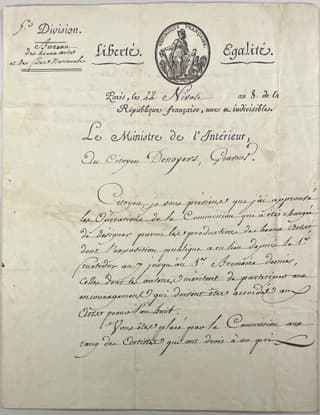 5e. Division.
Bureau
des beaux arts
et des fêtes Nationales
RÉPUBLIQUE FRANÇAISE
Liberté.
Egalité.
Paris, les 22 Nivose an 8. de la
République française, une et indivisible.
Le Ministre de l'Intérieur,
Au Citoyen Denoyers, Graveur.
Citoyen, je vous préviens que j'ai approuvé
les Opérations de la Commission qui a été chargée
de désigner parmi les productions des beaux Arts,
dont l'exposition publique a eu lieu depuis le 1er
fructidor an 7 jusqu'au 1er Brumaire dernier,
celles dont les auteurs méritent de participer aux
encouragements qui doivent être accordés aux
Arts pour l'an huit.
Vous êtes placé par la Commission au
rang des Artistes qui ont droit à un prix